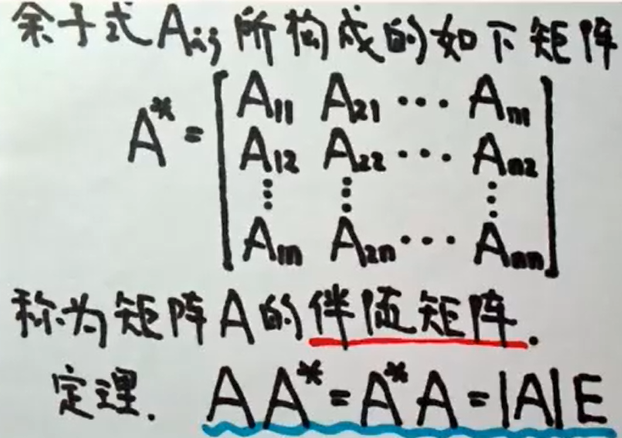 余子式Aij所构成的如下矩阵
A*=[A11 A21 ⋯ An1
A12 A22 ⋯ An2
⋮ ⋮ ⋮
A1n A2n ⋯ Ann]
称为矩阵A的伴随矩阵.
定理. AA*=A*A=|A|E